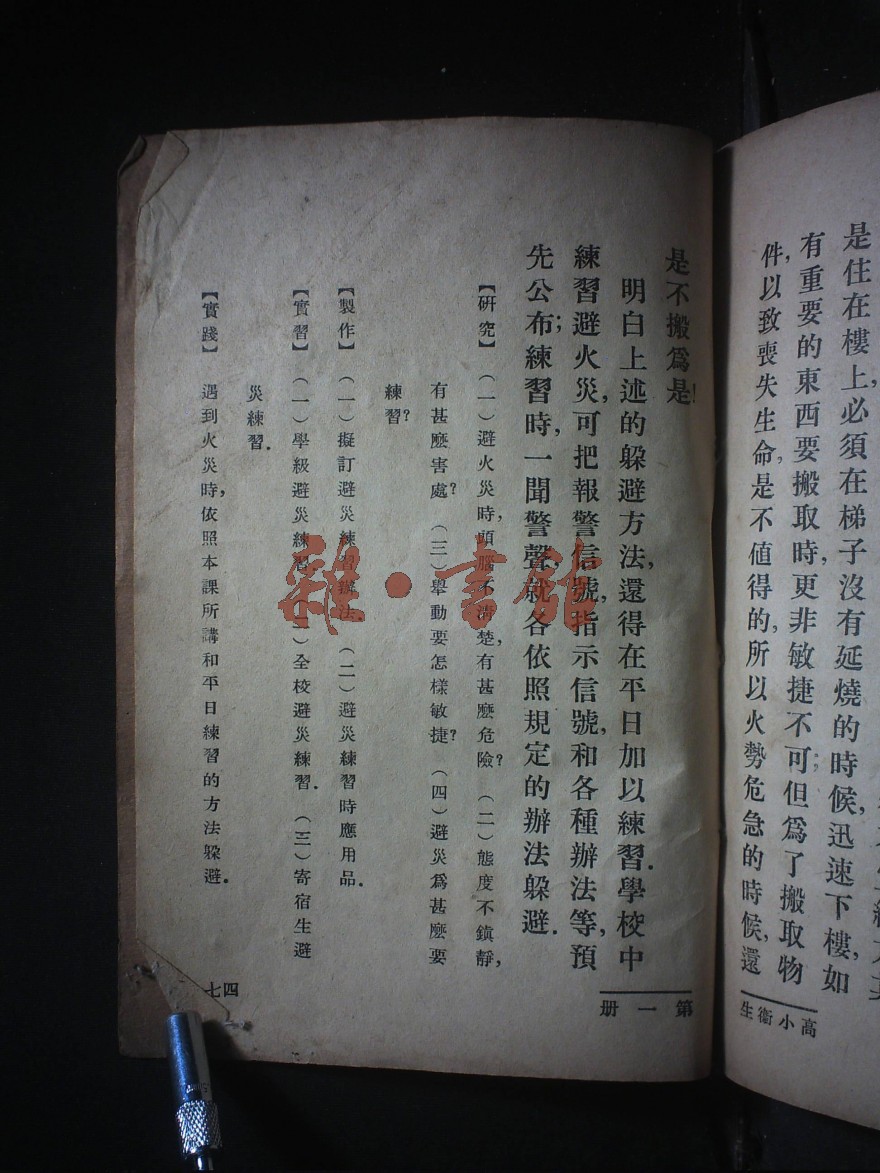 是住在樓上,必須在梯子沒有延燒的時候,迅速下樓,如
有重要的東西要搬取時,更非敏捷不可;但爲了搬取物
件,以致喪失生命,是不值得的,所以火勢危急的時候,還
高小衞生
是不搬爲是!
明白上述的躲避方法,還得在平日加以練習.學校中
練習避火災,可把報警信號,指示信號,和各種辦法等,預
先公布;練習時,一聞警聲,就各依照規定的辦法躲避.
【研究】(一)避火災時,頭腦不清楚,有甚麼危險?(二)態度不鎮靜,
有甚麼害處?(三)舉動要怎樣敏捷?(四)避災爲甚麼要
練習?
【製作】(一)擬訂避災練習辦法.(二)避災練習時應用品.
【實習】(一)學級避災練習.(二)全校避災練習.(三)寄宿生避
災練習.
【實踐】遇到火災時,依照本課所講和平日練習的方法躲避.
第一册
四七
雜·書館